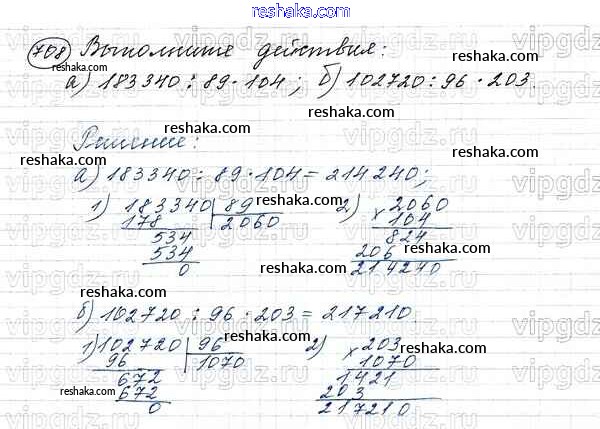 reshaka.com
708) Выполните действия:
reshaka.com
а) 183340 : 89 · 104; б) 102720 : 96 · 203.
reshaka.com
Решение:
reshaka.com
а) 183340 : 89 · 104 = 214240;
reshaka.com
1) 183340 | 89
178 2060
534
534
0
2) 2060
× 104
824
206
214240
reshaka.com
reshaka.com
б) 102720 : 96 · 203 = 217210
reshaka.com
1) 102720 | 96
96 1070
672
672
0
2) 203
× 1070
1421
203
217210
reshaka.com
reshaka.com
reshaka.com